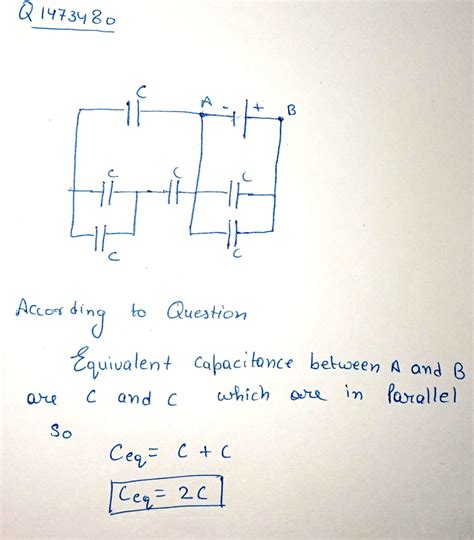 Q 1473480
C
A - + B
C C C
C C
According to Question
Equivalent capacitance between A and B
are C and C which are in Parallel
So
Ceq = C + C
Ceq = 2C